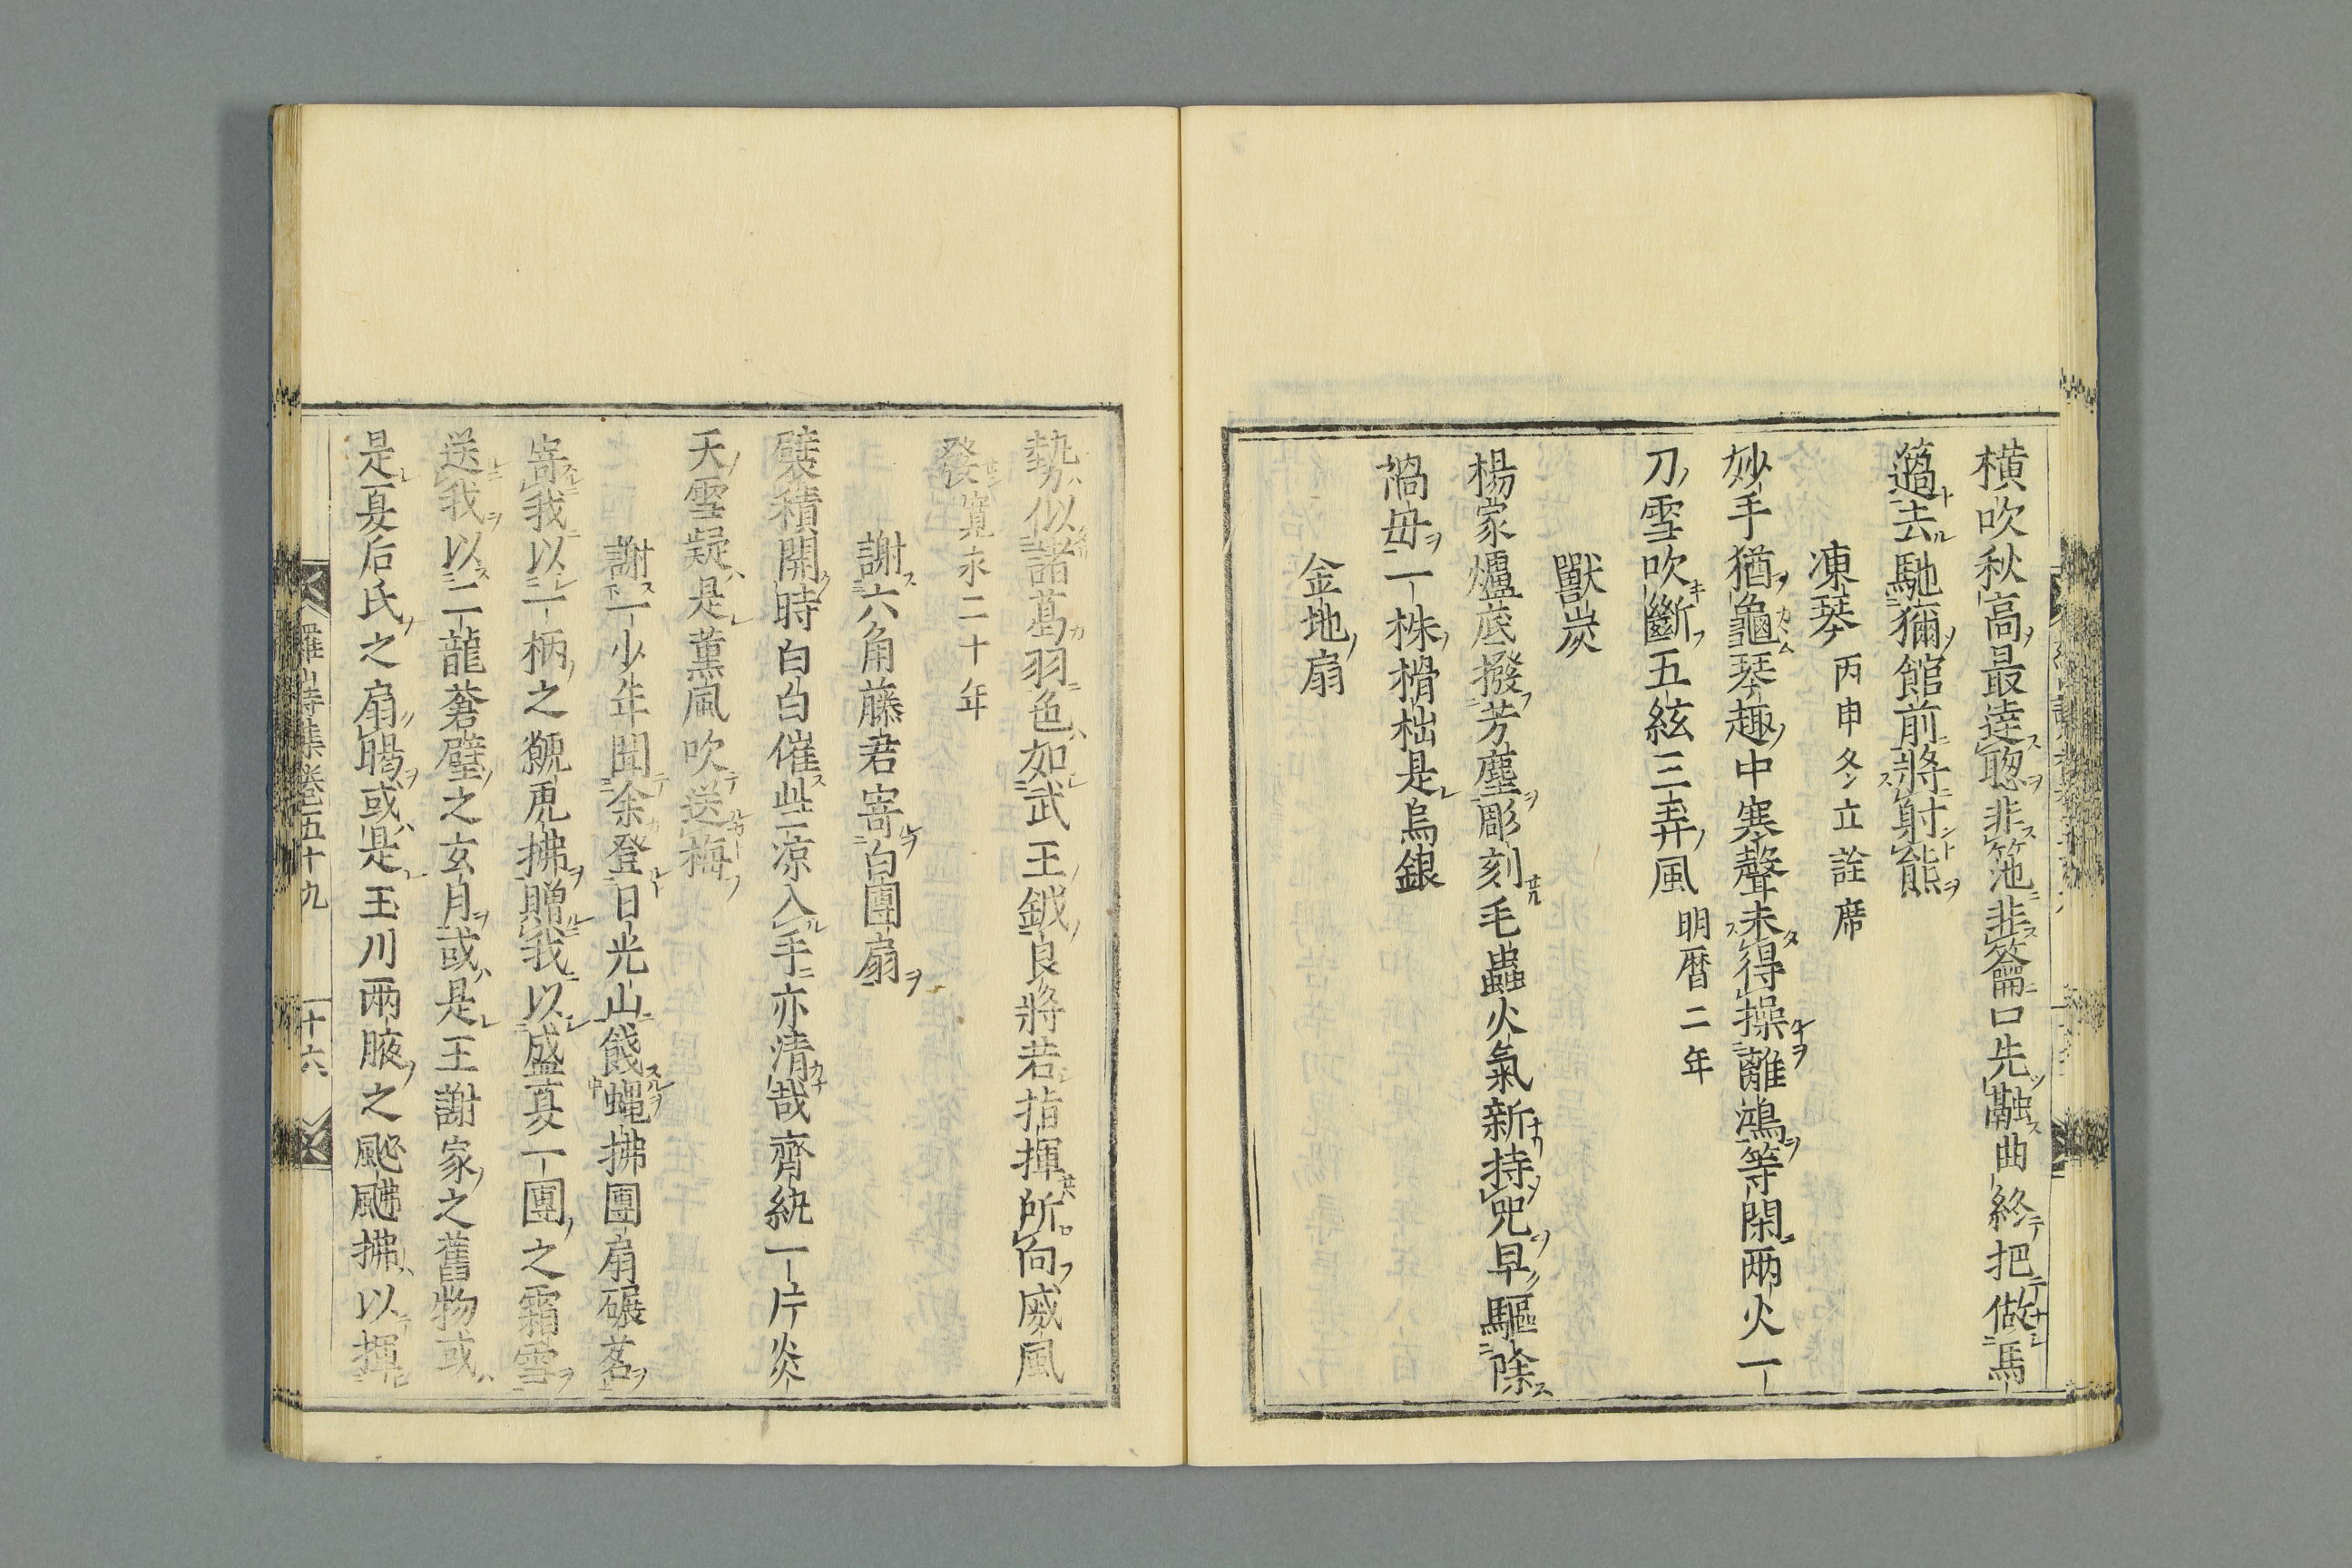 橫吹秋高最達聰非箎非籥口先融曲終把做馬
薖去馳獮館前將射熊
凍琴 丙申冬立詮席
妙手猶龜琴趣中寒聲未得操離鴻等閑兩火一
刀雪吹斷五絃三弄風 明暦二年
獸炭
楊家爐底撥芳塵彫刻毛蟲火氣新持兕早驅除
禍毋一株榾柮是烏銀
金地扇
勢似諸葛羽色如武王鉞良將若指揮所向威風
發 寬永二十年
謝六角藤君寄白團扇
襞積開時白白催些凉入手亦清哉齊紈一片炎
天雪疑是薰風吹送梅
謝一少年聞余登日光山餞蠅拂團扇碾茗
寄我以一柄之麈尾拂贈我以盛夏一團之霜雪
送我以二龍蒼璧之玄月或是王謝家之舊物或
是夏后氏之扇暍或是玉川兩腋之颸颸拂以揮
羅山詩集卷五十九 十六